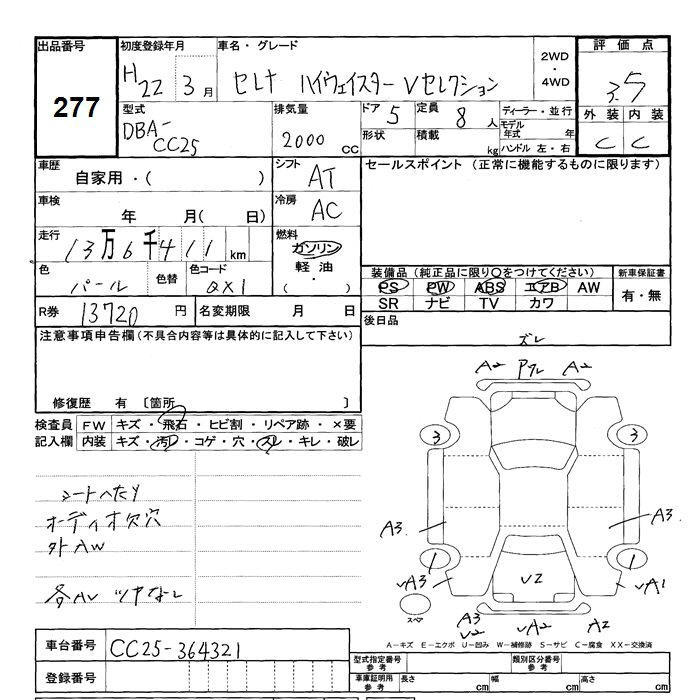 出品番号 初度登録年月 車名・グレード 2WD・4WD 評価点
277 H22 3月 セレナ ハイウェイスター Vセレクション 3.5
型式 排気量 ドア 5 定員 8人 ディーラー・並行 外装 内装
DBA-CC25 2000cc 形状 積載 kg モデル年式 年 C C
ハンドル 左・右
車歴 シフト セールスポイント(正常に機能するものに限ります)
自家用・( ) AT
車検 年 月( 日) 冷房 AC
走行 13万6千411km 燃料 ガソリン 軽油 ( ・ )
色 パール 色替 色コード QX1
装備品(純正品に限り○をつけてください) 新車保証書
PS PW ABS エアB AW 有・無
SR ナビ TV カワ
R券 13720円 名変期限 月 日 後日品
注意事項申告欄(不具合内容等は具体的に記入して下さい)
修復歴 有 〔箇所 〕
検査員記入欄 FW キズ・飛石・ヒビ割・リペア跡・×要
内装 キズ・汚レ・コゲ・穴・スレ・キレ・破レ
シートヘタリ
オーディオ欠穴
外AW
各AU ツヤなし
ズレ
A2 A2
3 3
A3 A3
1 1
UA3 U2 UA1
スペア
A3 U2 UA2 A2
A-キズ E-エクボ U-凹み W-補修跡 S-サビ C-腐食 XX-交換済
車台番号 CC25-364321 型式指定番号 参考 類別区分番号 参考
登録番号 車庫証明用 参考 長さ cm 幅 cm 高さ cm